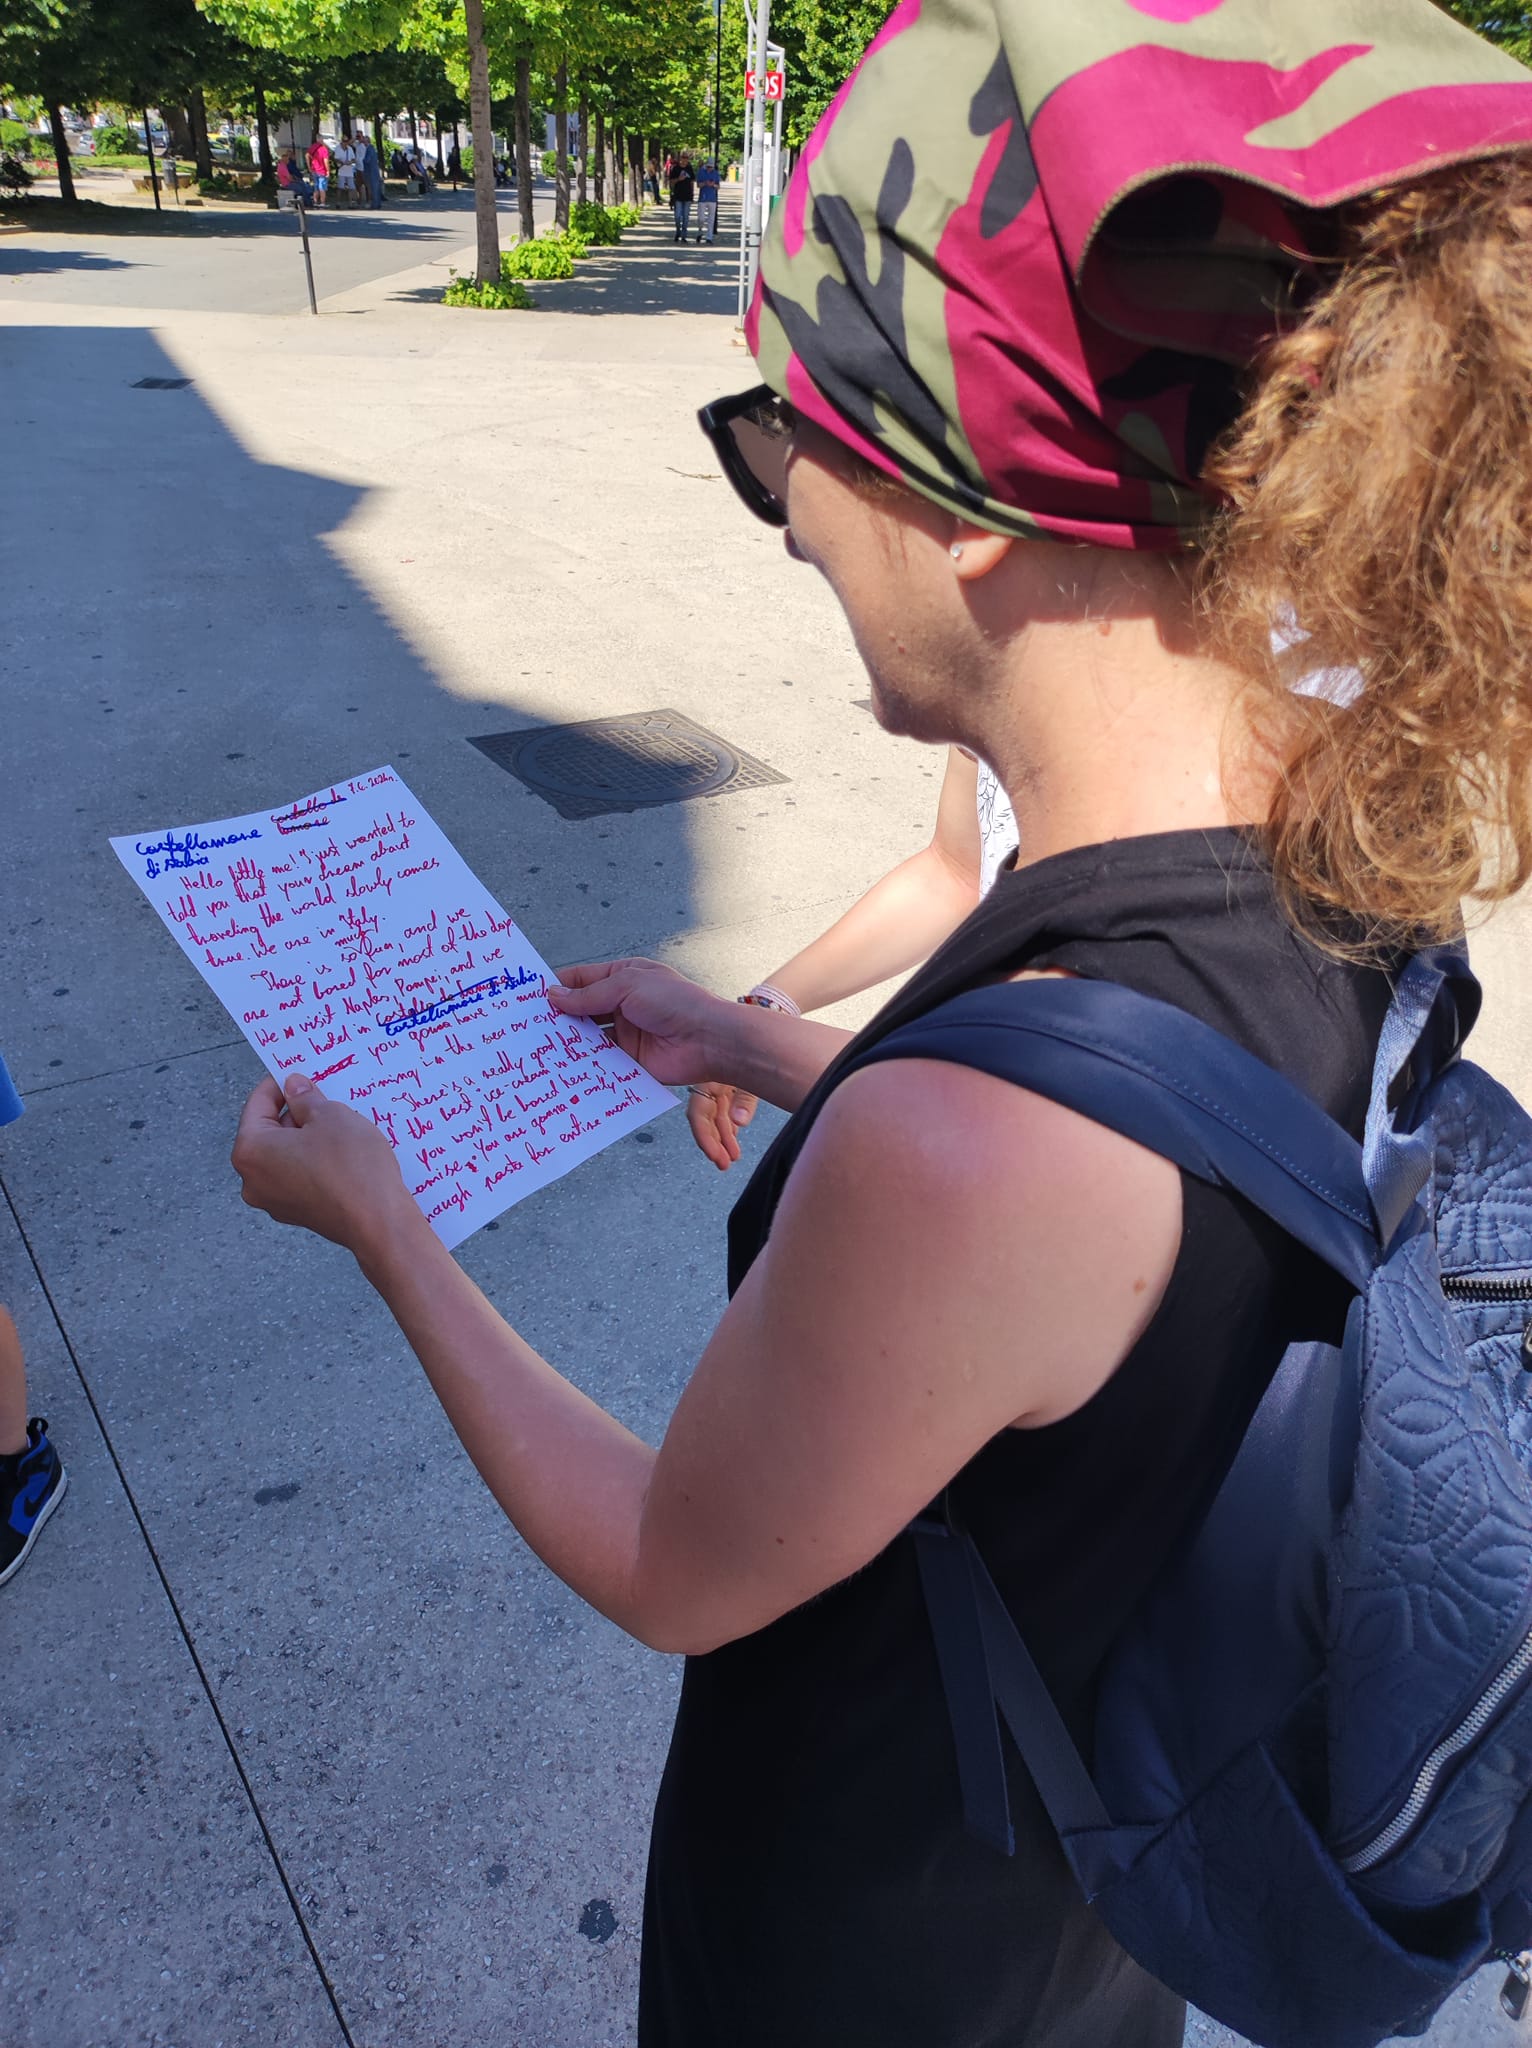 SOS
Castellamare Castello de 7.6.2024.
di stabia lamare
Hello little me! I just wanted to
told you that your dream about
traveling the world slowly comes
true. We are in Italy.
There is so much fun, and we
are not bored for most of the day.
We visit Naples, Pompei, and we
have hotel in Castello de lamare
Castellamare di stabia,
you gonna have so much
swiming in the sea or
There's a really good food,
the best ice-cream in the world
you won't be bored here, I
omise. You are gonna only have
naugh pasta for entire month.